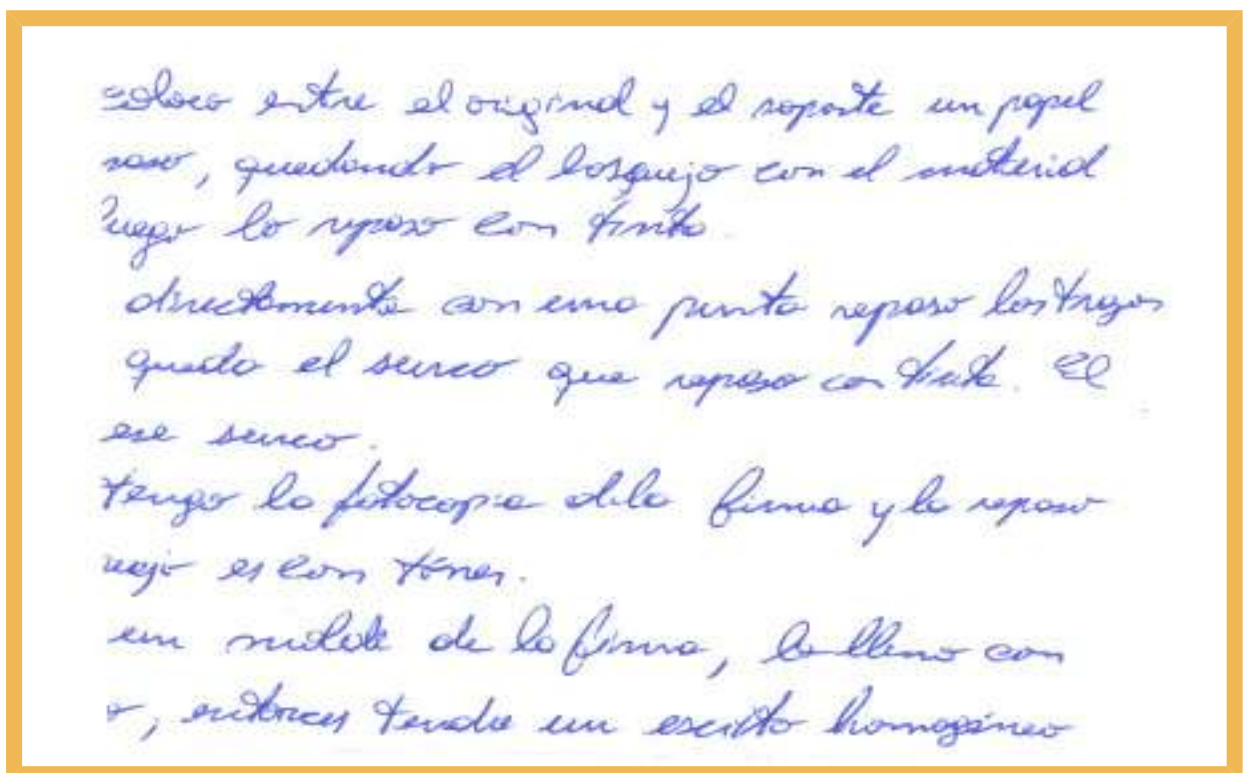 coloco entre el original y el soporte un papel
, quedando el bosquejo con el material
luego lo repaso con tinta.
directamente con una punta repaso los trazos
queda el surco que repaso con tinta. El
ese surco.
tengo la fotocopia de la firma y la repaso
es con tóner.
un molde de la firma, lo lleno con
, entonces tendré un escrito homogéneo